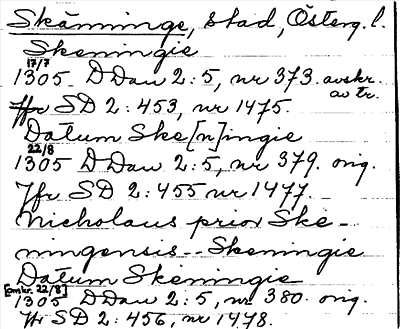 Skänninge, stad, Österg. l.
Skeningie
17/7
1305 D Dan 2:5, nr 373. avskr. av tr.
Jfr SD 2:453, nr 1475.
Datum Ske[n]ingie
22/8
1305 D Dan 2:5, nr 379. orig.
Jfr SD 2:455 nr 1477.
Nicholaus prior Ske-
ningensis -- Skeningie
Datum Skeningie
[omkr. 22/8]
1305 D Dan 2:5, nr 380. orig.
Jfr SD 2:456, nr 1478.